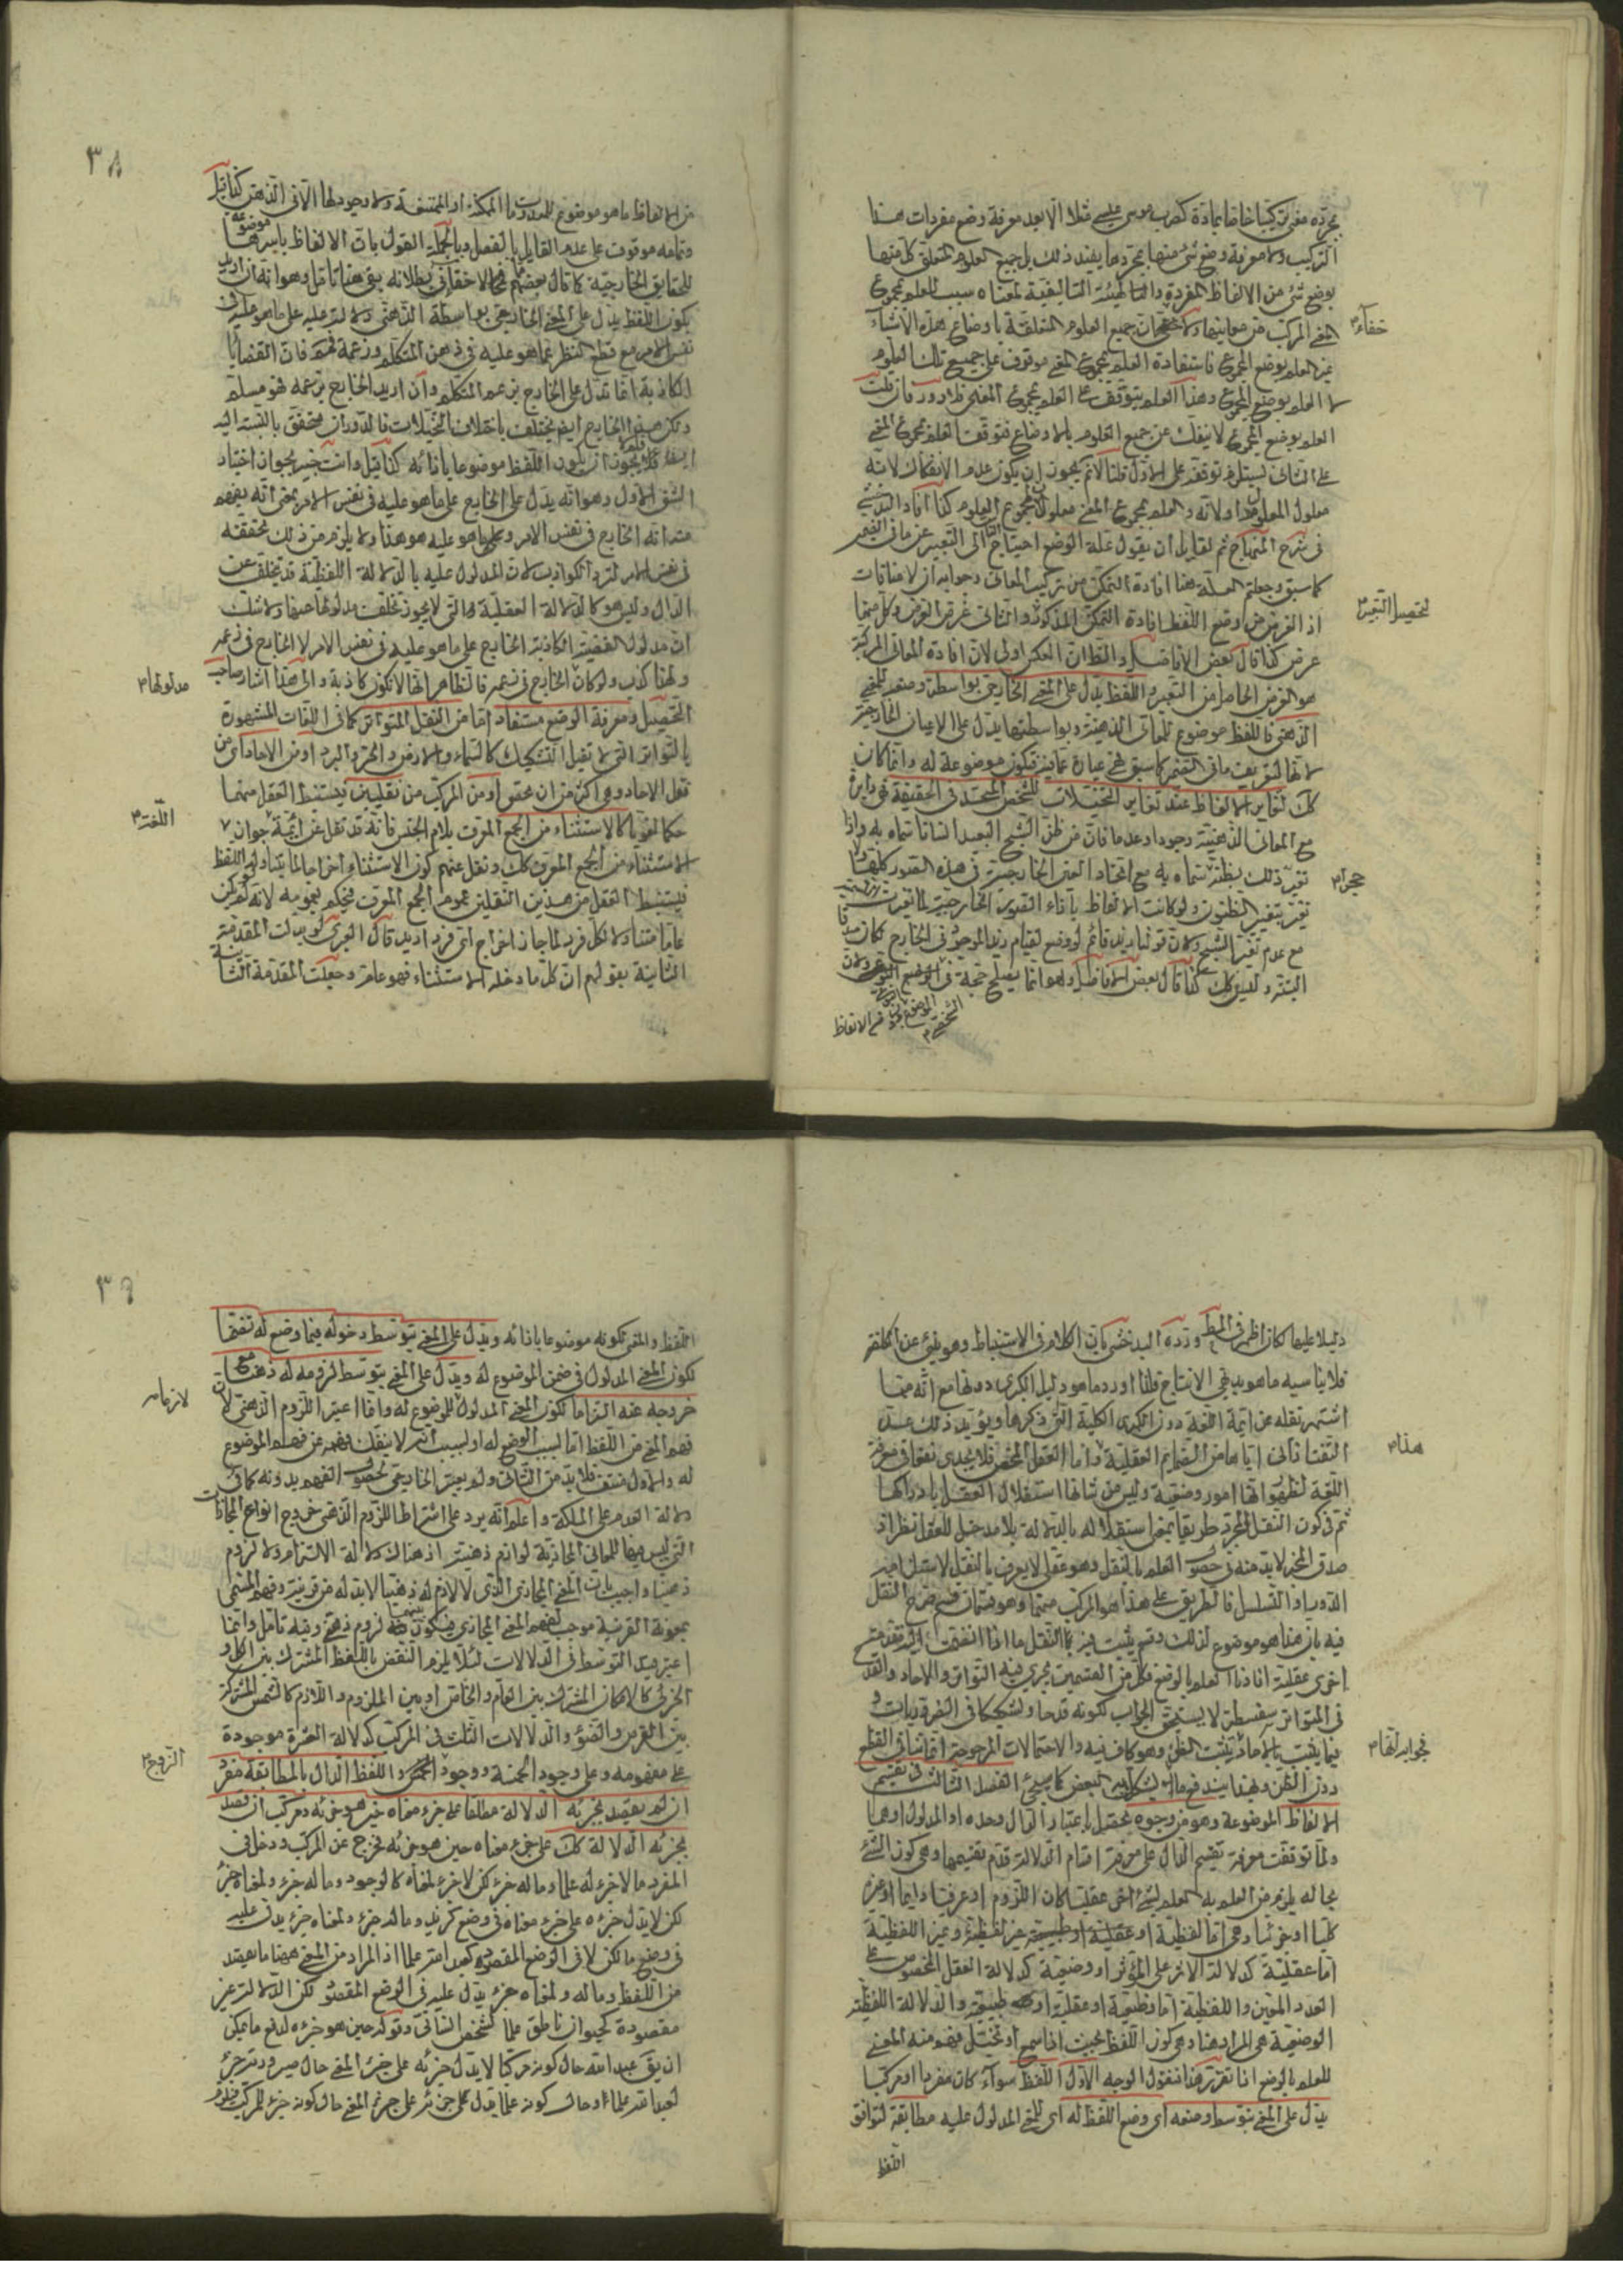 مجرده مفردا
التركيب ولا معرفة وضع شئ منها بمجردها يفيد ذلك بل جميع العلوم المتعلق كل منها
بوضع شئ من الالفاظ المفردة والهيئة التأليفية لمعناه سبب للعلم بمجموع
المعنى المركب من معانيها ولا خفاء ان جميع العلوم المتعلقة باوضاع هذه الاشياء
غير العلم بوضع المجموع فاستفادة العلم بمجموع المعنى موقوف على جميع تلك العلوم
لا العلم بوضع المجموع وهذا العلم يتوقف على العلم بمجموع المعنى فلا دور فان قلت
العلم بوضع المجموع لا ينفك عن جميع العلوم بالاوضاع فتوقف العلم بمجموع المعنى
على الثانى يستلزم توقفه على الاول قلنا لانم لجواز ان يكون عدم الانفكاك لانه
معلول
فى شرح المنهاج ثم لقايل ان يقول علة الوضع احتياج الناس الى التعبير عن ما فى الضمير
كما سبق وجعلتم العلة هنا افادة التمكن من تركيب المعانى وجوابه ان لا منافات
اذ الغرض من وضع اللفظ افادة التمكن المذكور والثانى غرض الغرض وكل منهما
غرض كذا قال بعض الافاضل والظ ان العكس اولى لان افادة المعانى المركبة
هو الغرض الحاصل من التعبير واللفظ يدل على المعنى الخارجى بواسطة وضعه للمعنى
الذهنى فاللفظ موضوع للمعانى الذهنية وبواسطتها يدل على الاعيان الخارجية
لانها لتعريف ما فى الضمير كما سبق فهى عبارة عما فيه فتكون موضوعة له وانما كان
كك لتغاير الالفاظ عند تغاير التخيلات للشخص المتحد فى الحقيقة فهى دايرة
مع المعانى الذهنية وجودا وعدما فان من ظن الشبح البعيد انسانا سماه به واذا
تغير ذلك بظنه سماه به مع اتحاد العين الخارجية فى هذه الصور كلها
تغير بتغير الظنون ولو كانت الالفاظ بازاء الصور الخارجية لما تغيرت
مع عدم تغير الشبح ولان قولنا زيد قائم لو وضع لقيام زيد الموجود فى الخارج لكان صدقا
البتة وليس كك كذا قال بعض الافاضل وهو انما يصلح حجة فى الوضع النوعى ولان
من الالفاظ
خفاء
لتحصيل التعبير
حجرا
٣٨
من الالفاظ ما هو موضوع للمعدومات الممكنة او الممتنعة ولا وجود لها الا فى الذهن كذا قيل
وتمامه موقوف على عدم القايل بالفصل وبالجملة القول بان الالفاظ باسرها موضوعة
للحقايق الخارجية كما قال بعضهم مما لا خفاء فى بطلانه بقى هنا تامل وهو انه ان اريد
بكون اللفظ يدل على المعنى الخارجى بواسطة الذهنى دلالته عليه على ما هو عليه فى
نفس الامر مع قطع النظر عما هو عليه فى ذهن المتكلم وزعمه فمم فان القضايا
الكاذبة انما تدل على الخارج بزعم المتكلم وان اريد الخارج بزعمه فهو مسلم
ولكن هذا الخارج ايضا يختلف باختلاف التخيلات فالدوران متحقق بالنسبة اليه
ايضا فلم لا يجوز ان يكون اللفظ موضوعا بازائه كذا قيل وانت خبير بجواز اختيار
الشق الاول وهو انه يدل على الخارج على ما هو عليه فى نفس الامر بمعنى انه يفهم
منه انه الخارج فى نفس الامر وما هو عليه هو هذا ولا يلزم من ذلك تحققه
فى نفس الامر لتردد الكواذب لان المدلول عليه بالدلالة اللفظية قد يتخلف عن
الدال وليس هو كالدلالة العقلية التى لا يجوز تخلف مدلولها عنها ولا شك
ان مدلول القضية الكاذبة الخارج على ما هو عليه فى نفس الامر لا الخارج فى زعمه
ولهذا كذب ولو كان الخارج فى زعمه فالظاهر انها لا تكون كاذبة والى هذا اشار صاحب
التحصيل ومعرفة الوضع مستفاد اما من النقل المتواتر كما فى اللغات المشهورة
بالتواتر التى لا تقبل التشكيك كالسماء والارض والحر والبرد او من الاحاد اى من
نقل الاحاد وهو اكثر من ان يحصى او من المركب من نقليين فيستنبط العقل منهما
حكما لغويا كالاستثناء من الجمع المعرف بلام الجنس فانه قد نقل عن ائمة جواز
الاستثناء من الجمع المعرف كك ونقل عنهم كون الاستثناء اخراجا لما يتناوله اللفظ
فيستنبط العقل من هذين النقلين عموم الجمع المعرف فيحكم بعمومه لانه لو لم يكن
عاما متناولا لكل فرد لما جاز اخراج اى فرد اريد قال العبرى لو بدلت المقدمة
الثانية بقولهم ان كل ما دخله الاستثناء فهو عام وجعلت المقدمة الثانية
مدلولها
اللغة
دليلا عليها كان اظهر فى المط ورده البدخشى بان الكلام فى الاستنباط وهو ينبئ عن الكلفة
فلا يناسبه ما هو بديهى الانتاج فلذا اورد ما هو دليل الكبرى دونها مع انه مما
اشتهر نقله عن ائمة اللغة دون الكبرى الكلية التى ذكرها ويؤيد ذلك عد
التفتازانى اياها من الضمايم العقلية واما العقل المحض فلا يجدى نفعا فى معرفة
اللغة لظهور انها امور وضعية وليس من شانها استقلال العقل بادراكها
ثم فى كون النقل المجرد طريقا بمعنى استقلاله بالدلالة بلا مدخل للعقل نظر اذ
صدق المخبر لا بد منه فى حصول العلم بالنقل وهو عقلى لا يعرف بالنقل لاستلزامه
الدور او التسلسل فالطريق على هذا هو المركب منهما وهو قسمان قسم صرح النقل
فيه بان هذا هو موضوع لذلك وقسم يثبت فيه بالنقل ما اذا انضمت اليه مقدمة
اخرى عقلية افادا العلم بالوضع فكل من القسمين يجرى فيه التواتر والاحاد والقدح
فى المتواتر سفسطة لا يستحق الجواب لكونه قدحا وتشكيكا فى الضروريات و
فيما يثبت بالاحاد يثبت الظن وهو كاف فيه والاحتمالات المرجوحة انما تنافى القطع
دون الظن وبهذا يندفع ما يشكك به البعض كما سيجئ الفصل الثالث فى تقسيم
الالفاظ الموضوعة وهو من وجوه يحصل باعتبار الدال وحده او المدلول او هما
ولما توقفت معرفة تقسيم الدال على معرفة اقسام الدلالة قدم تقسيمها وهى كون الشئ
بحاله يلزم من العلم به العلم بشئ اخر عقليا كان اللزوم او عرفيا دايما او غيره
كليا او جزئيا وهى اما لفظية او غير لفظية وغير اللفظية
اما عقلية كدلالة الاثر على المؤثر او وضعية كدلالة العقد المخصوص على
العدد المعين واللفظية اما وضعية او عقلية او طبيعية والدلالة اللفظية
الوضعية هى المراد هنا وهى كون اللفظ بحيث اذا سمع او تخيل فهم منه المعنى
للعلم بالوضع اذا تقرر هذا فنقول الوجه الاول اللفظ سواء كان مفردا او مركبا
يدل على المعنى بتوسط وضعه اى وضع اللفظ له اى للمعنى المدلول عليه مطابقة لتوافق
اللفظ
هذا
فجوابه انها
٣٩
اللفظ والمعنى لكونه موضوعا بازائه ويدل على المعنى بتوسط دخوله فيما وضع له تضمنا
لكون المعنى المدلول فى ضمن الموضوع له ويدل على المعنى بتوسط لزومه له ذهنا مع
خروجه عنه التزاما لكون المعنى المدلول للموضوع له وانما اعتبر اللزوم الذهنى لان
فهم المعنى من اللفظ اما بسبب الوضع له او بسبب انه لا ينفك فهمه عن فهم الموضوع
له والاول منتف فلا بد من الثانى ولم يعتبر الخارجى لحصول الفهم بدونه كما فى
دلالة العدم على الملكة واعلم انه يرد على اشتراط اللزوم الذهنى خروج انواع المجازات
التى ليس فيها للمعانى المجازية لوازم ذهنية اذ هناك دلالة الالتزام ولا لزوم
ذهنيا واجيب بان المعنى المجازى الذى لا لازم له ذهنيا لا بد له من قرينة وفهم المسمى
بمعونة القرينة موجب لفهم المعنى المجازى فيكون بينهما لزوم ذهنى وفيه تامل وانما
اعتبر قيد التوسط فى الدلالات لئلا يلزم النقض باللفظ المشترك بين الكل و
الجزئ كالامكان المشترك بين العام والخاص او بين الملزوم واللازم كالشمس المشتركة
بين القرص والضوء والدلالات الثلث فى المركب كدلالة العشرة موجودة
على مفهومه وعلى وجود الخمسة ووجود واللفظ الدال بالمطابقة مفرد
ان لم يقصد بجزئه الدلالة مطلقا على جزء معناه حين هو جزئه ومركب ان قصد
بجزئه الدلالة كك على جزء معناه حين هو جزئه فخرج عن المركب ودخل فى
المفرد ما لا جزء له علما وما له جزء لكن لا جزء لمعناه كالوجود وما له جزء ولمعناه جزء
لكن لا يدل جزءه على جزء معناه فى وضع كزيد وما له جزء ولمعناه جزء يدل عليه
فى وضع ما لكن لا فى الوضع المقصود كعبد الله علما اذ المراد من المعنى ههنا ما يقصد
من اللفظ وما له ولمعناه جزء يدل عليه فى الوضع المقصود لكن الدلالة غير
مقصودة كحيوان ناطق علما لشخص انسانى وقوله حين هو جزءه لدفع ما يمكن
ان يق عبد الله حال كونه مركبا لا يدل جزئه على جزء المعنى حال صيرورته جزء
لعبد الله علما او حال كونه علما يدل على جزئه على جزء المعنى حال كونه جزء للمركب
لازما
الزوج